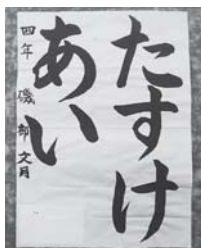 たすけ
あい
四年 磯部文月